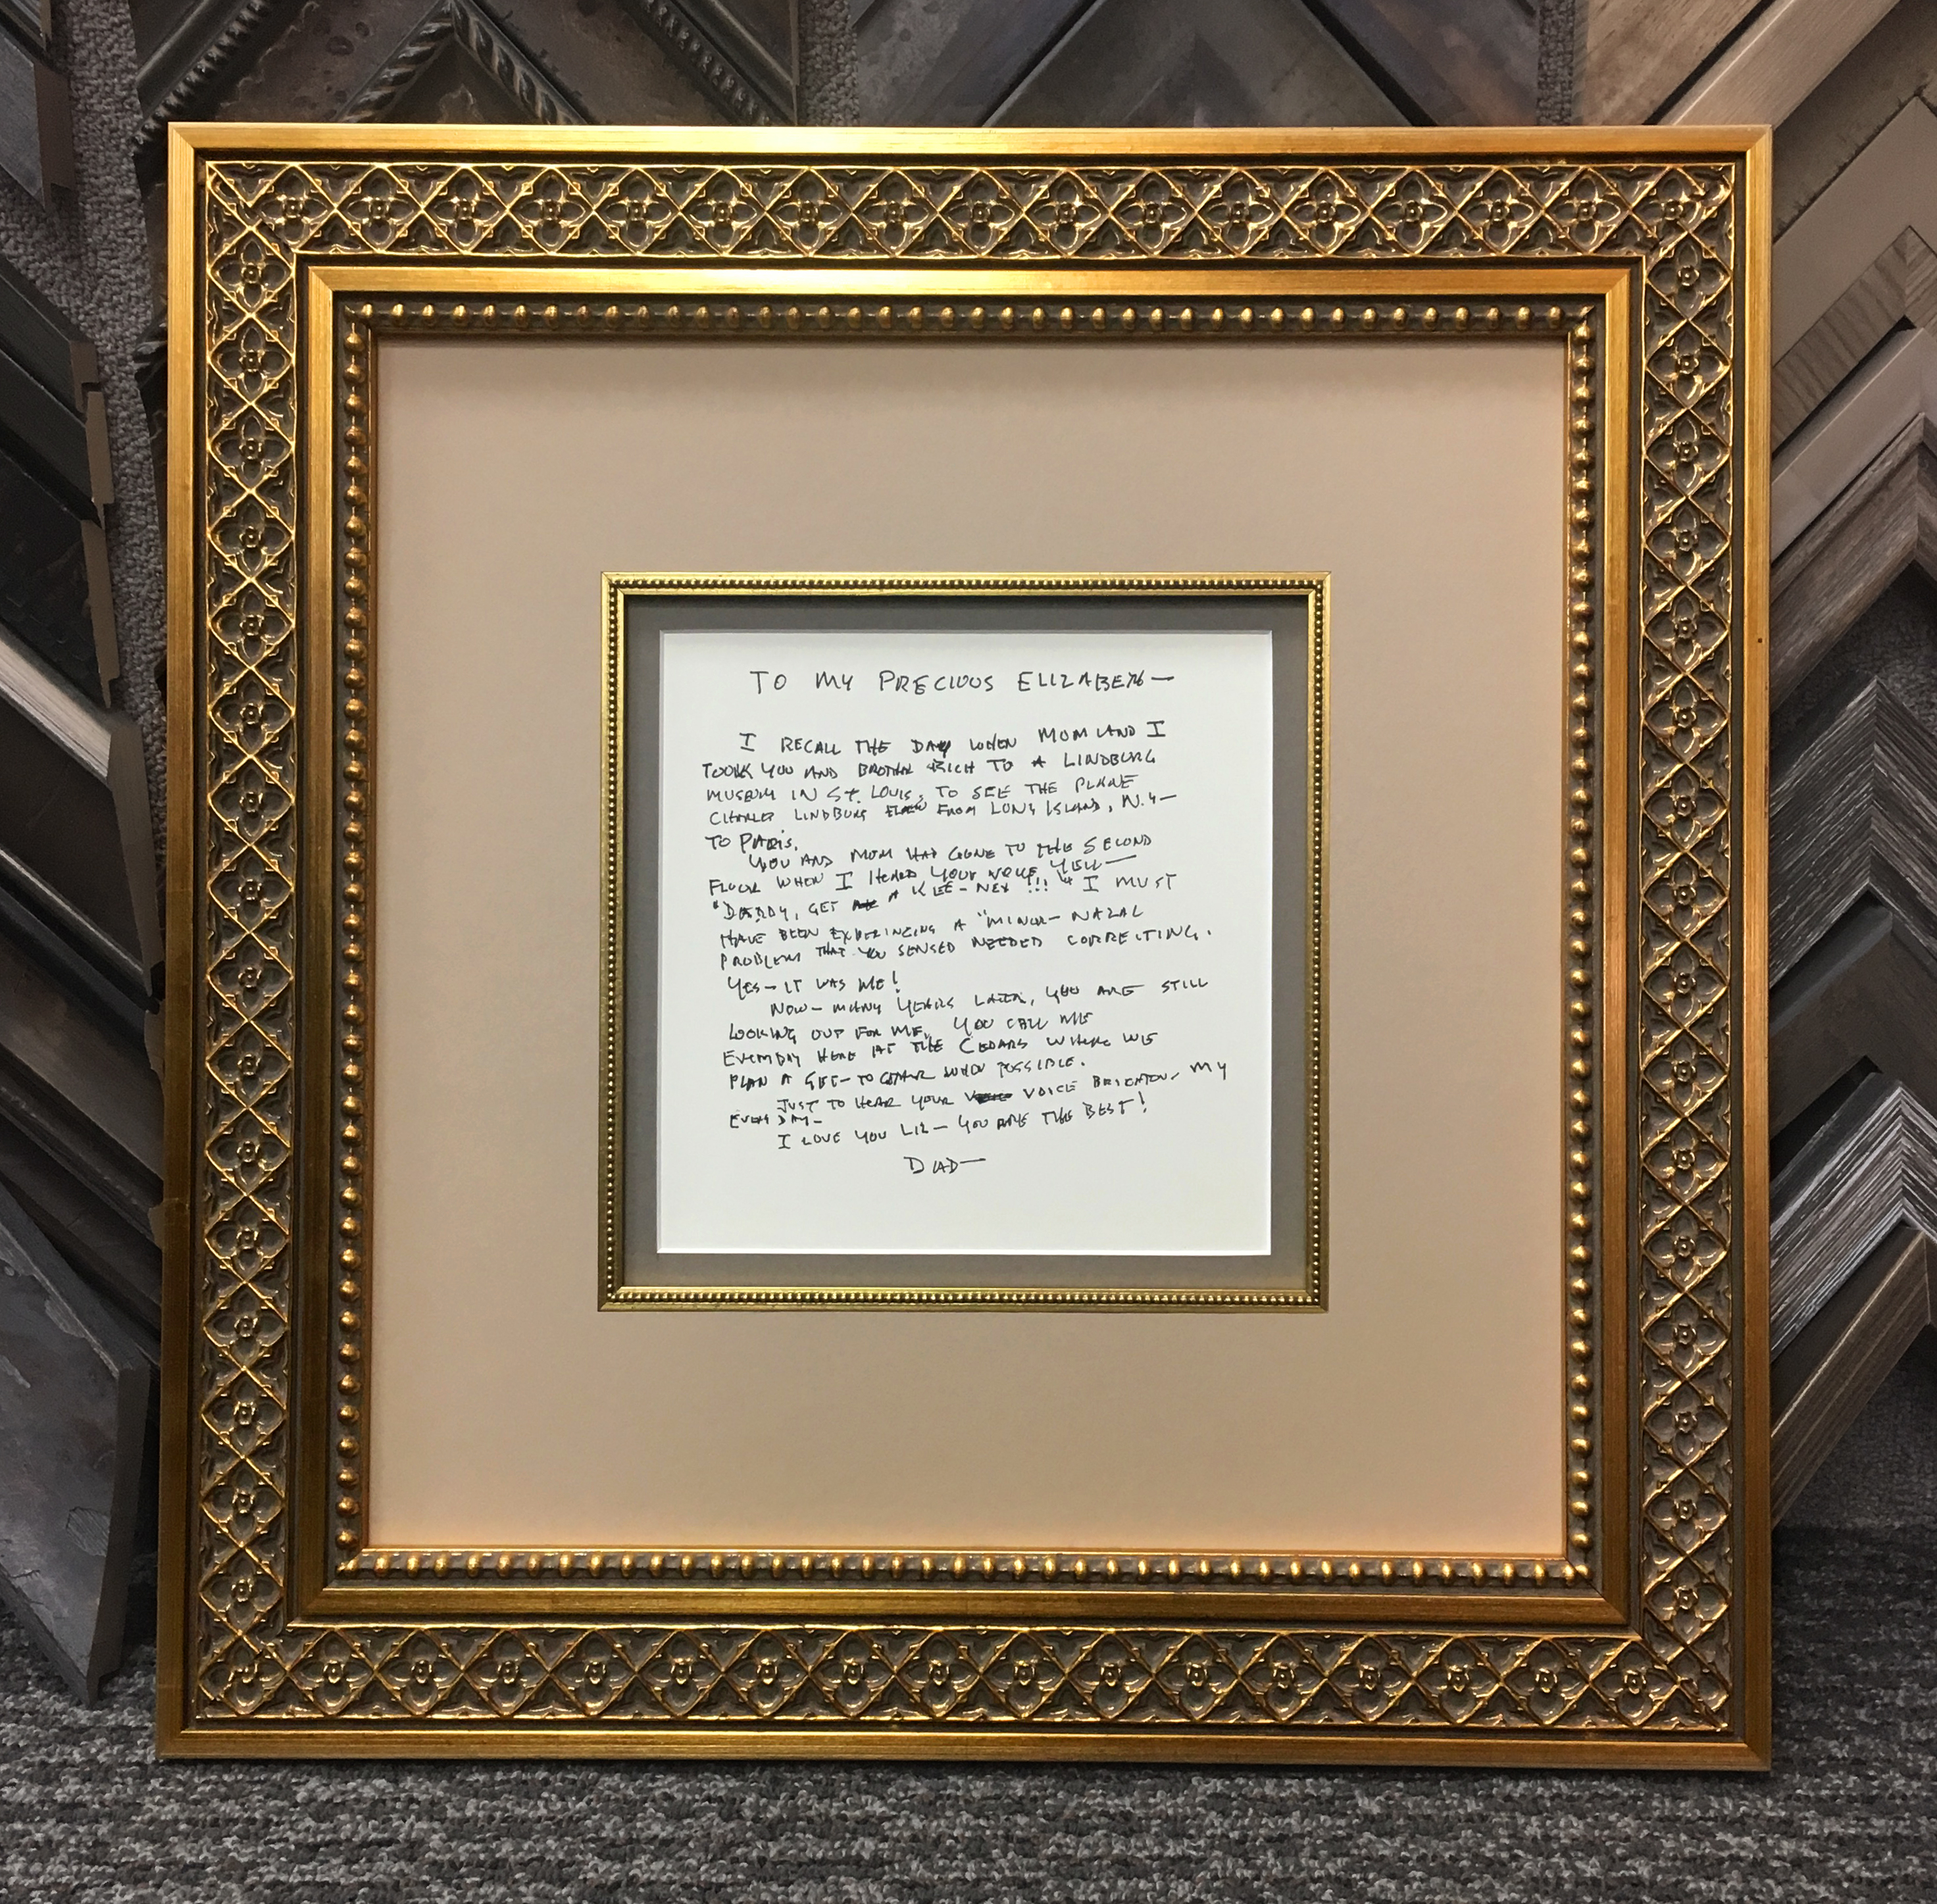 TO MY PRECIOUS ELIZABETH—
I RECALL THE DAY WHEN MOM AND I
TOOK YOU AND BROTHER RICH TO A LINDBURG
MUSEUM IN ST. LOUIS, TO SEE THE PLANE
CHARLES LINDBURG FLEW FROM LONG ISLAND, N.Y—
TO PARIS.
YOU AND MOM HAD GONE TO THE SECOND
FLOOR WHEN I HEARD YOUR VOICE YELL—
"DADDY, GET A KLEE-NEX !!!" I MUST
HAVE BEEN EXPERINCING A "MINOR- NAZAL
PROBLEM THAT YOU SENSED NEEDED CORRECTING.
YES- IT WAS ME!
NOW- MANY YEARS LATER, YOU ARE STILL
LOOKING OUT FOR ME, YOU CALL ME
EVERYDAY HERE AT THE CEDARS WHERE WE
PLAN A GET-TOGETHER WHEN POSSIBLE.
JUST TO HEAR YOUR VOICE BRIGHTONS MY
EVERY DAY-
I LOVE YOU LIZ— YOU ARE THE BEST!
DAD—